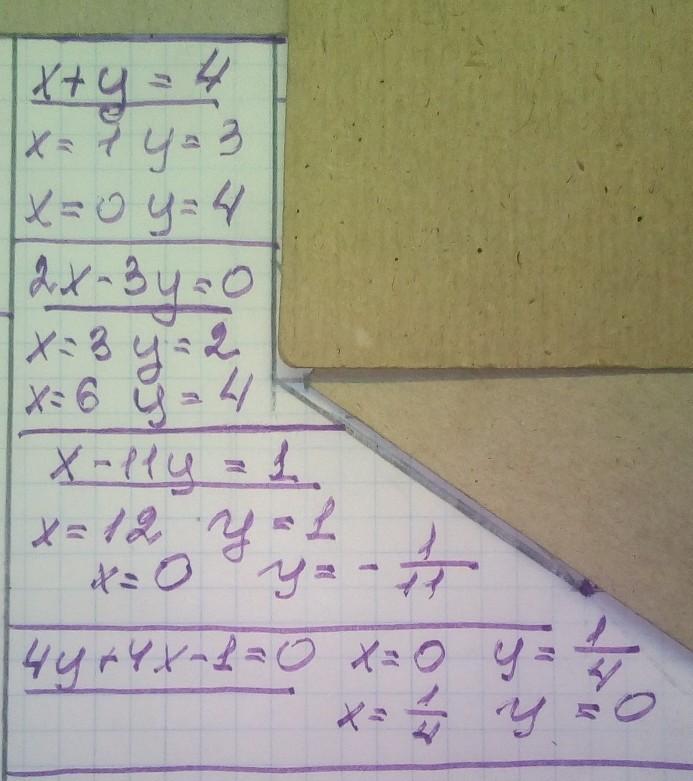 x+y=4
x=1 y=3
x=0 y=4
2x-3y=0
x=3 y=2
x=6 y=4
x-11y=1
x=12 y=1
x=0 y=-1/11
4y+4x-1=0 x=0 y=1/4
x=1/4 y=0